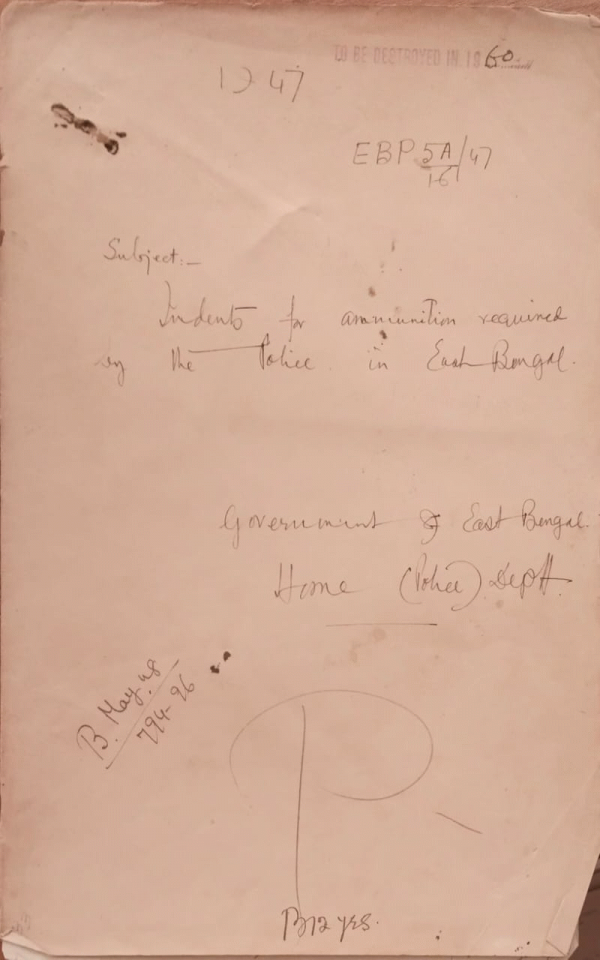 TO BE DESTROYED IN 1960
47
EBP 5A/47
16
Subject:-
Indents for ammunition required
by the Police in East Bengal.
Government of East Bengal.
Home (Police) Deptt.
B. May. 48
794-96
P
B 12 yrs.